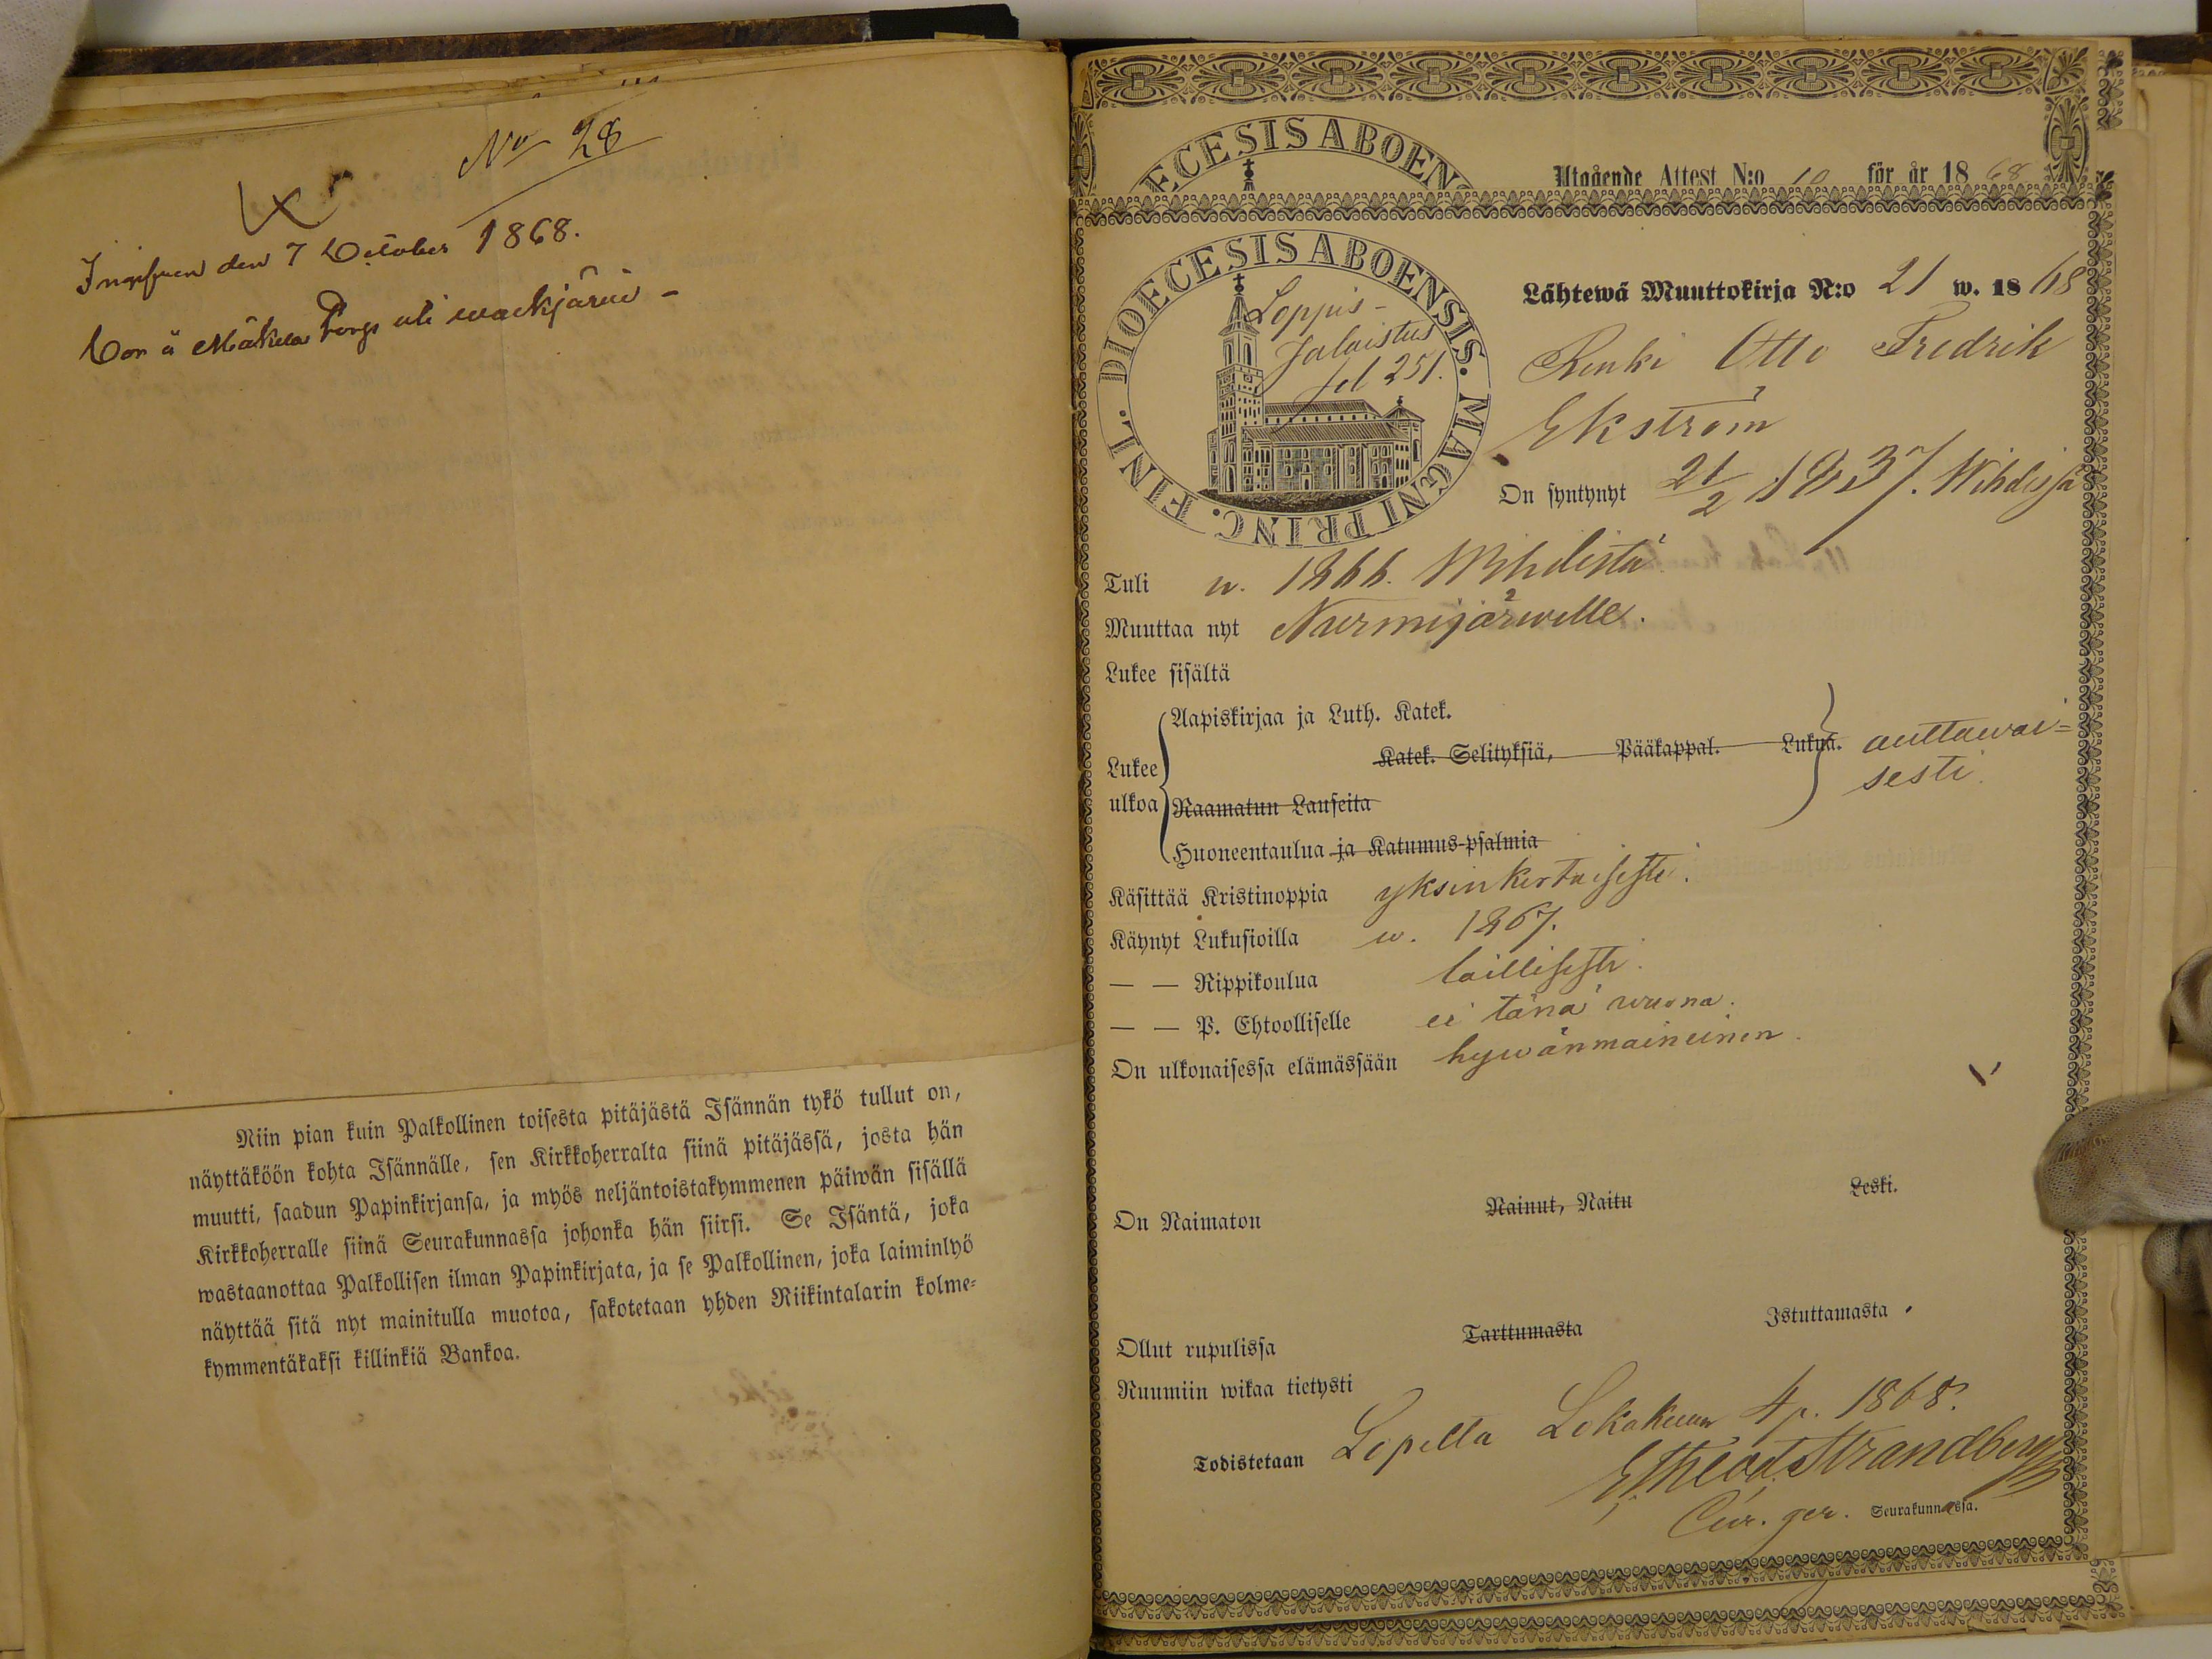 No 28
Ingifven den 7 October 1868.
Bor å Mäkelä Torp uti wackjärwi -
Niin pian kuin Palkollinen toisesta pitäjästä Isännän tykö tullut on,
näyttäköön kohta Isännälle, sen Kirkkoherralta siinä pitäjässä, josta hän
muutti, saadun Papinkirjansa, ja myös neljäntoistakymmenen päiwän sisällä
Kirkkoherralle siinä Seurakunnassa johonka hän siirsi. Se Isäntä, joka
wastaanottaa Palkollisen ilman Papinkirjata, ja se Palkollinen, joka laiminlyö
näyttää sitä nyt mainitulla muotoa, sakotetaan yhden Riikintalarin kolme-
kymmentäkaksi killinkiä Bankoa.
ECESIS ABOEN
Utgående Attest N:o 10 för år 1868
DIOECESIS ABOENSIS. MAGNI PRINC. FINL.
Loppis-
Jalaistus
fol 251.
Lähtewä Muuttokirja N:o 21 w. 1868
Renki Otto Fredrik
Ekström
On syntynyt 21/2 1837. Wihdissä
Tuli w. 1866. Wihdistä
Muuttaa nyt Nurmijärwelle.
Lukee sisältä
Aapiskirjaa ja Luth. Katek.
Katek. Selityksiä, Pääkappal. Lukua. auttawai=
Lukee
sesti.
ulkoa Raamatun Lauseita
Huoneentaulua ja Katumus-psalmia
Käsittää Kristinoppia yksinkertaisesti.
Käynyt Lukusioilla w. 1867.
— — Rippikoulua laillisesti.
— — P. Ehtoolliselle ei tänä wuona.
On ulkonaisessa elämässään hywänmaineinen.
On Naimaton Nainut, Naitu Leski.
Ollut rupulissa Tarttumasta Istuttamasta
Ruumiin wikaa tietysti
Todistetaan Lopella Lokakuun 4 p. 1868.
Theod. Strandberg
Cur. ger. Seurakunnassa.